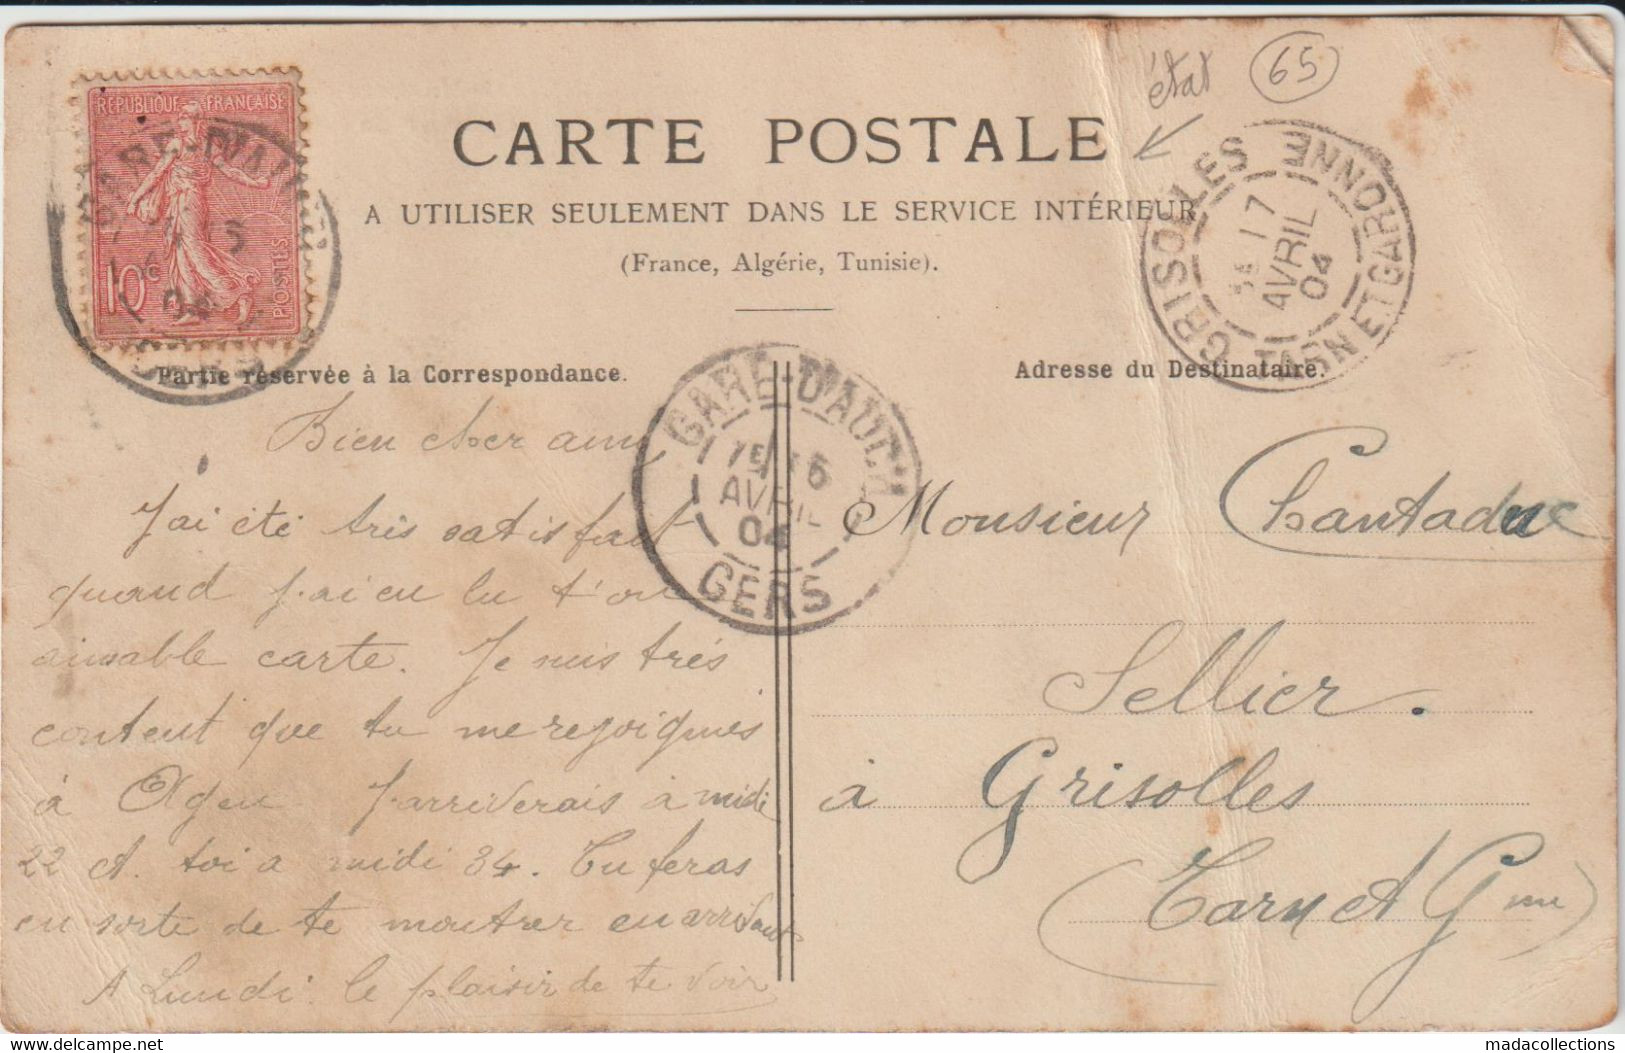 REPUBLIQUE FRANÇAISE
10c POSTES
GARE-D'AU
04
état 65
CARTE POSTALE
A UTILISER SEULEMENT DANS LE SERVICE INTÉRIEUR
(France, Algérie, Tunisie).
GRISOLLES
17
AVRIL
04
TARN ET GARONNE
Partie réservée à la Correspondance.
Adresse du Destinataire.
GARE-D'AUCH
16
AVRIL
04
GERS
Bien cher ami
J'ai été très satisfait
quand j'ai eu lu t'on
aimable carte. Je suis très
content que tu me rejoignes
à Agen j'arriverais à midi
22 et toi a midi 34. Tu feras
en sorte de te montrer en arrivant
A Lundi le plaisir de te voir
Monsieur Chantaduc
Sellier.
à Grisolles
(Tarn et Gnne)
madacollections